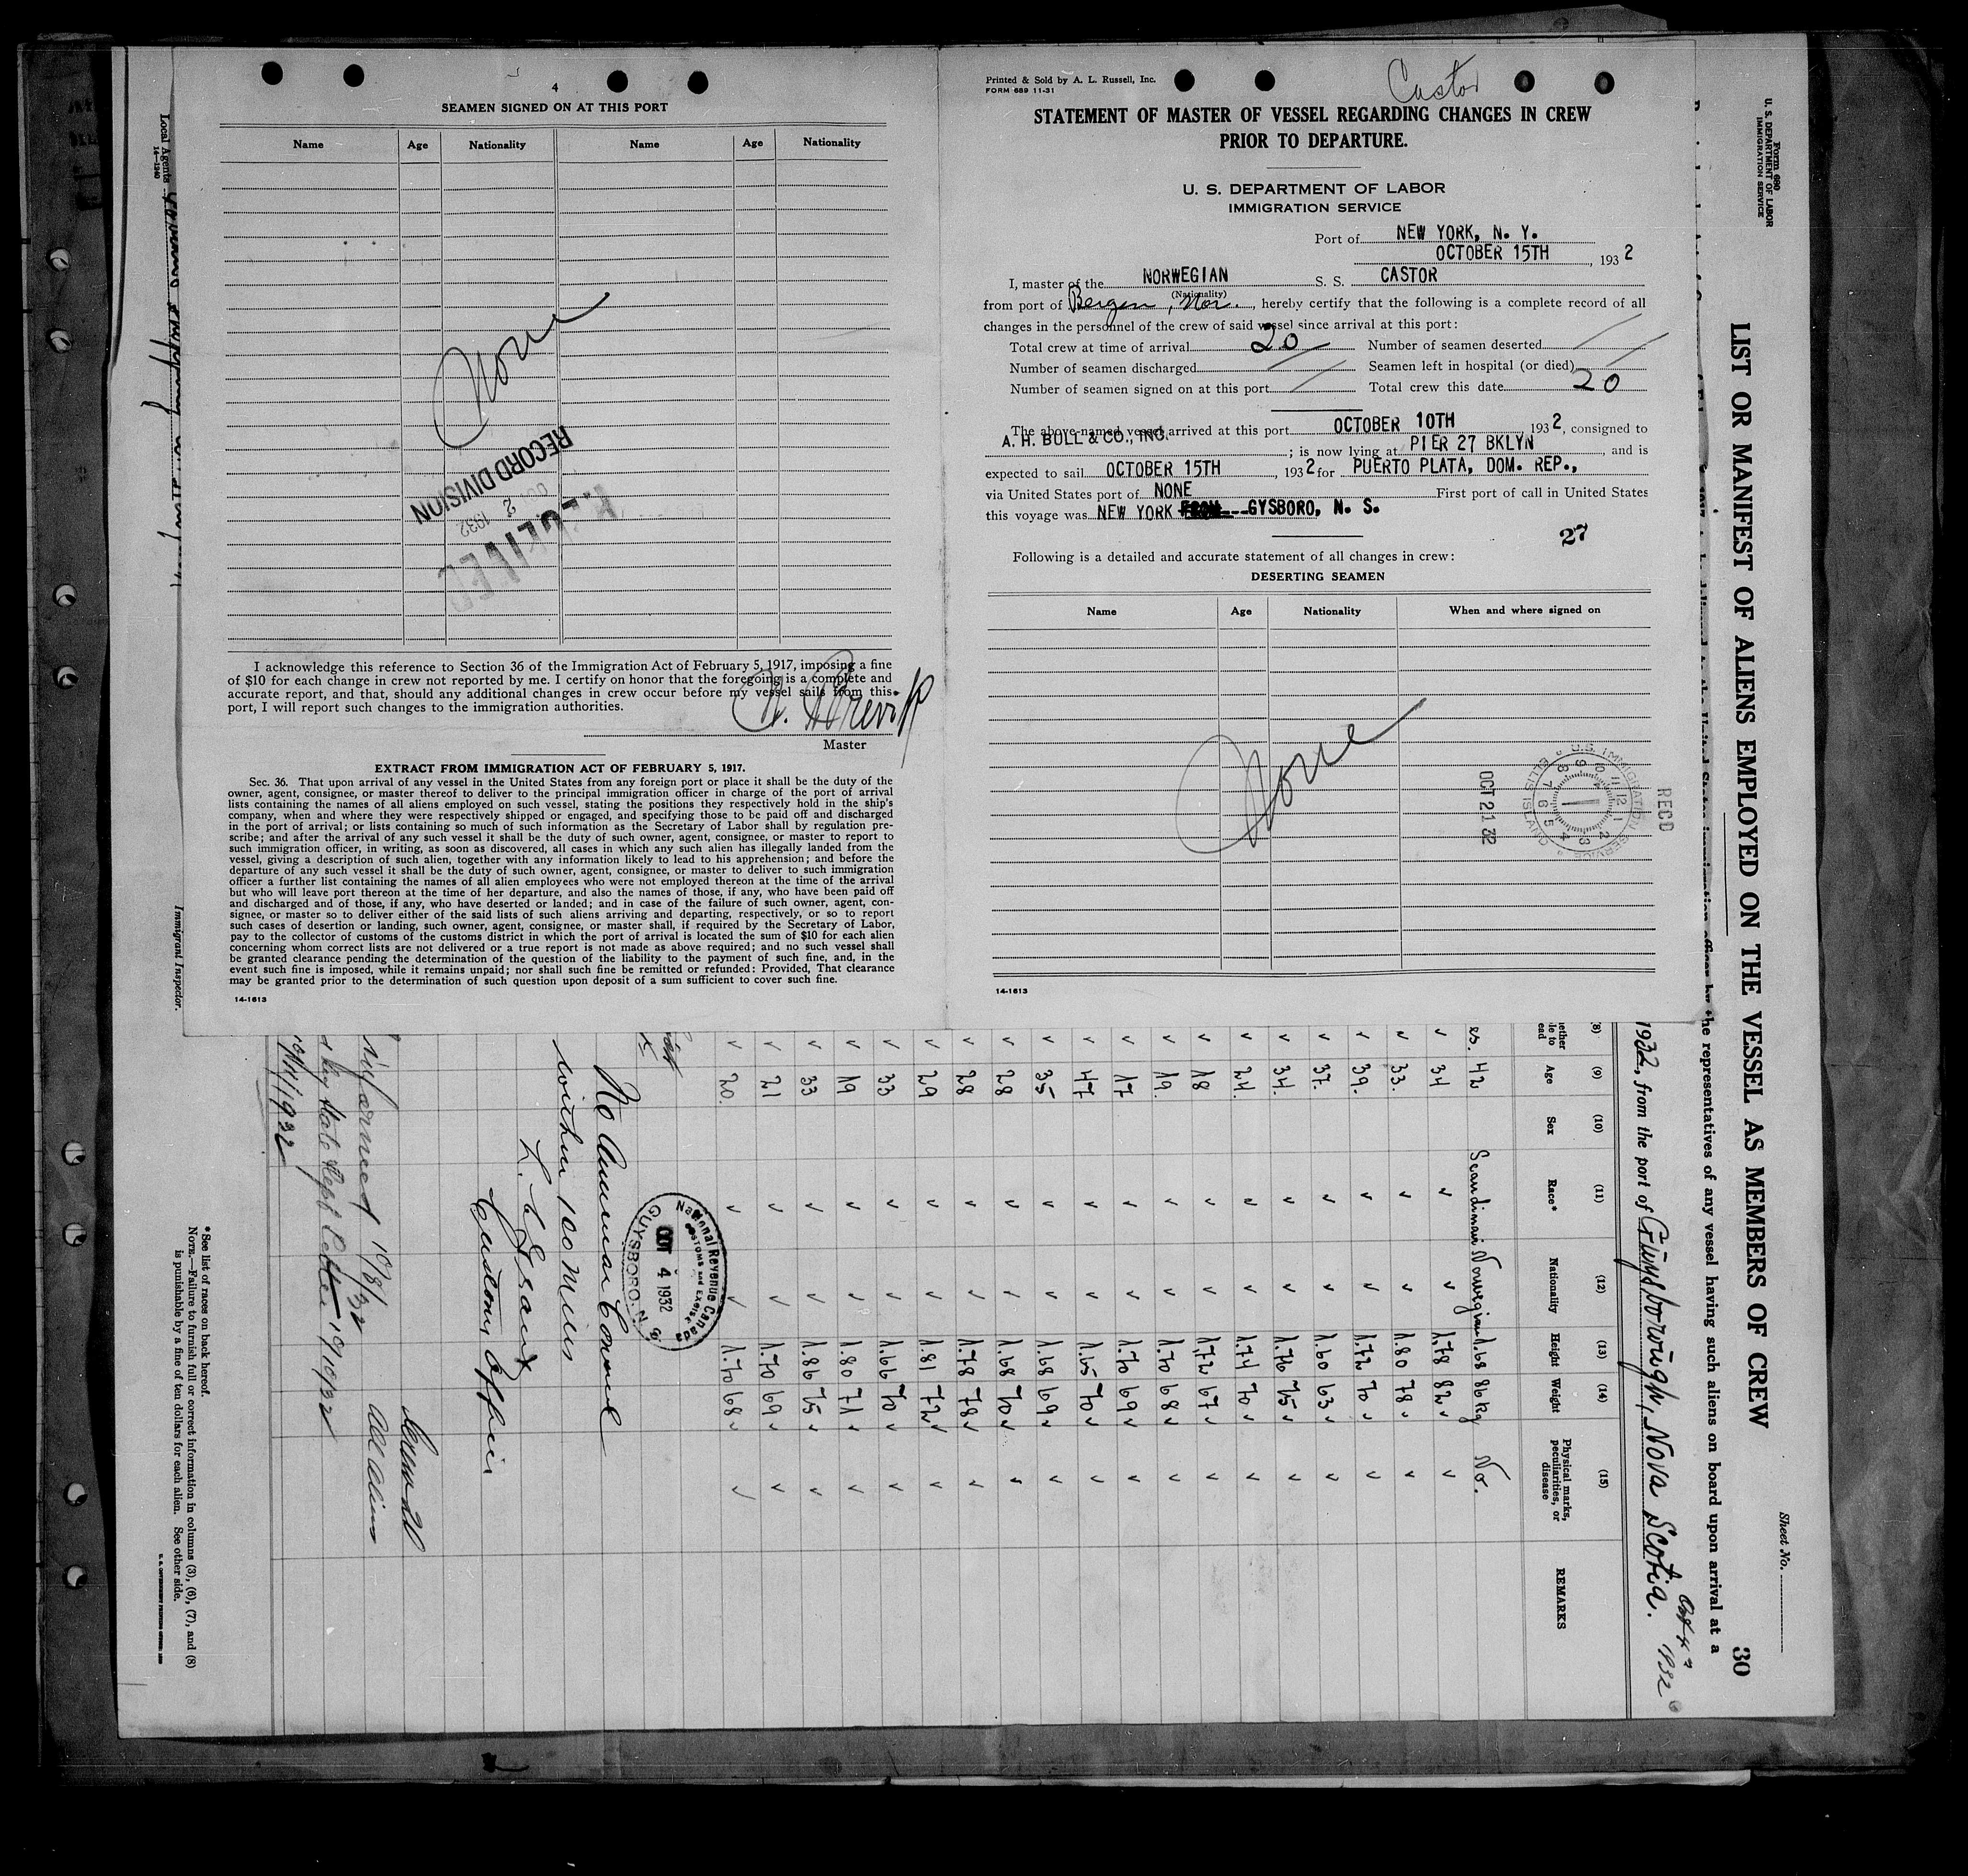 4
SEAMEN SIGNED ON AT THIS PORT
Name Age Nationality Name Age Nationality
None
RECORD DIVISION
2 1932
RECEIVED
I acknowledge this reference to Section 36 of the Immigration Act of February 5, 1917, imposing a fine
of $10 for each change in crew not reported by me. I certify on honor that the foregoing is a complete and
accurate report, and that, should any additional changes in crew occur before my vessel sails from this
port, I will report such changes to the immigration authorities.
Master
EXTRACT FROM IMMIGRATION ACT OF FEBRUARY 5, 1917.
Sec. 36. That upon arrival of any vessel in the United States from any foreign port or place it shall be the duty of the
owner, agent, consignee, or master thereof to deliver to the principal immigration officer in charge of the port of arrival
lists containing the names of all aliens employed on such vessel, stating the positions they respectively hold in the ship's
company, when and where they were respectively shipped or engaged, and specifying those to be paid off and discharged
in the port of arrival; or lists containing so much of such information as the Secretary of Labor shall by regulation pre-
scribe; and after the arrival of any such vessel it shall be the duty of such owner, agent, consignee, or master to report to
such immigration officer, in writing, as soon as discovered, all cases in which any such alien has illegally landed from the
vessel, giving a description of such alien, together with any information likely to lead to his apprehension; and before the
departure of any such vessel it shall be the duty of such owner, agent, consignee, or master to deliver to such immigration
officer a further list containing the names of all alien employees who were not employed thereon at the time of the arrival
but who will leave port thereon at the time of her departure, and also the names of those, if any, who have been paid off
and discharged and of those, if any, who have deserted or landed; and in case of the failure of such owner, agent, con-
signee, or master so to deliver either of the said lists of such aliens arriving and departing, respectively, or so to report
such cases of desertion or landing, such owner, agent, consignee, or master shall, if required by the Secretary of Labor,
pay to the collector of customs of the customs district in which the port of arrival is located the sum of $10 for each alien
concerning whom correct lists are not delivered or a true report is not made as above required; and no such vessel shall
be granted clearance pending the determination of the question of the liability to the payment of such fine, and, in the
event such fine is imposed, while it remains unpaid; nor shall such fine be remitted or refunded: Provided, That clearance
may be granted prior to the determination of such question upon deposit of a sum sufficient to cover such fine.
14-1613
Printed & Sold by A. L. Russell, Inc.
FORM 689 11-31
Castor
STATEMENT OF MASTER OF VESSEL REGARDING CHANGES IN CREW
PRIOR TO DEPARTURE.
U. S. DEPARTMENT OF LABOR
IMMIGRATION SERVICE
Port of NEW YORK, N. Y.
OCTOBER 15TH, 1932
I, master of the NORWEGIAN S. S. CASTOR
(Nationality)
from port of Bergen, Nor., hereby certify that the following is a complete record of all
changes in the personnel of the crew of said vessel since arrival at this port:
Total crew at time of arrival 20 Number of seamen deserted /
Number of seamen discharged / Seamen left in hospital (or died) /
Number of seamen signed on at this port / Total crew this date 20
The above-named vessel arrived at this port OCTOBER 10TH, 1932, consigned to
A. H. BULL & CO., INC.; is now lying at PIER 27 BKLYN, and is
expected to sail OCTOBER 15TH, 1932 for PUERTO PLATA, DOM. REP.,
via United States port of NONE First port of call in United States
this voyage was NEW YORK FROM GYSBORO, N. S.
27
Following is a detailed and accurate statement of all changes in crew:
DESERTING SEAMEN
Name Age Nationality When and where signed on
None
REC'D
U.S. IMMIGRATION SERVICE ELLIS ISLAND
OCT 21 32
14-1613
Form 680
U. S. DEPARTMENT OF LABOR
IMMIGRATION SERVICE
Sheet No.
LIST OR MANIFEST OF ALIENS EMPLOYED ON THE VESSEL AS MEMBERS OF CREW
30
the representatives of any vessel having such aliens on board upon arrival at a
1932, from the port of Guysborough, Nova Scotia.
1932
(8) (9) (10) (11) (12) (13) (14) (15)
Age Sex Race* Nationality Height Weight Physical marks, peculiarities, or disease REMARKS
es. 42 Scandinavi Norwegian 1.68 86 kg No.
34 1.78 82
33. 1.80 78
39. 1.72 70
37. 1.60 63
34. 1.76 75
24. 1.74 70
18 1.72 67
19. 1.70 68
17 1.70 69
47 1.65 70
35 1.68 69
28 1.68 70
28 1.78 78
29 1.81 72
33 1.66 70
19 1.80 71
33 1.86 75
21 1.70 69
20. 1.70 68
National Revenue Canada
CUSTOMS and EXCISE
OCT 4 1932
GUYSBORO, N. S.
No American Consul
within 100 miles
Customs Officer
10/8/32
State Dept letter
1932
*See list of races on back hereof.
NOTE.—Failure to furnish full or correct information in columns (3), (6), (7), and (8)
is punishable by a fine of ten dollars for each alien. See other side.
Local Agents
14-1240
Immigrant Inspector.